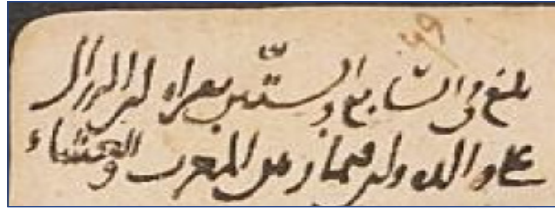 بلغ في السابع والستين بقراءة ابن
على والده وابن بين المغرب والعشاء